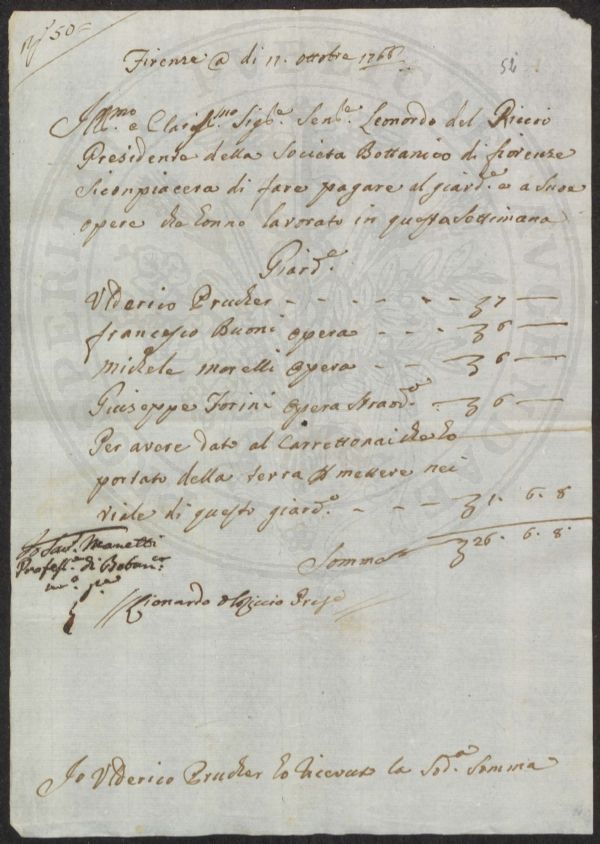 N.° 50=
52
Firenze @ di 11. ottobre 1766
Ill.mo e Clariss.mo Sig.re Sen.re Leonardo del Riccio
Presidente della Societa Bottanica di fiorenze
Siconpiacera di fare pagare al giard.e e a Suoe
opere che Hanno lavorato in questa Settimana
Giard.e
Vlderico Prucher - - - - - - 7 —
francesco Buoni opera - - - 6 —
Michele morelli opera - - 6 —
Giuseppe Forini opera Straord.o - 6 —
Per avere dato al Carrettonai che ho
portato della terra p mettere nei
viale di questo giard.o - - - 1. 6. 8
Somma 26. 6. 8.
Io Sav. Manetti
Profess.e di Botan.ca
m.o p.a
Lionardo del Riccio Presd.e
Jo Vlderico Prucher ho Ricevuto la Sod.a Somma